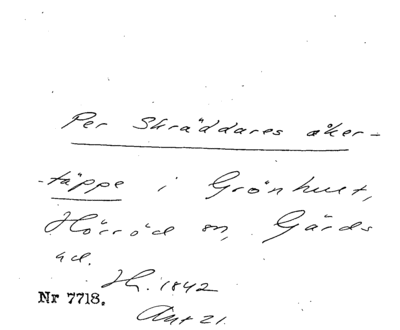 Per Skräddares åker-
-täppe i Grönhult,
Hörröd sn, Gärds
hd.
Hj. 1842
Nr 7718.
Ant 21.